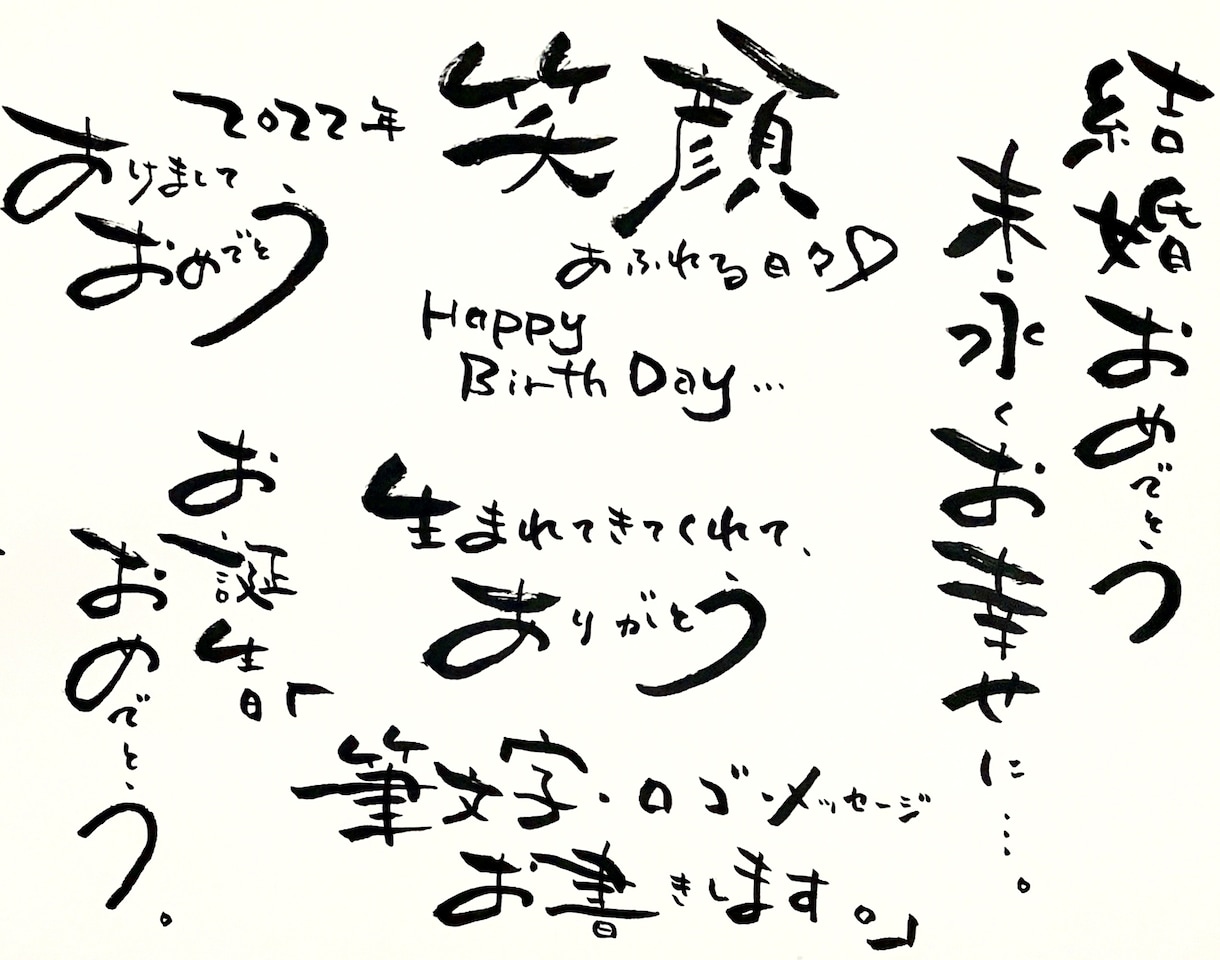 結婚おめでとう
末永くお幸せに…。
笑顔
あふれる日々♡
2022年
あけまして
おめでとう
Happy
Birth Day…
生まれてきてくれて、
ありがとう
お誕生日
おめでとう。
「筆文字・ロゴ・メッセージ
お書きします。」